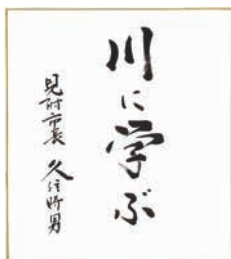 川に学ぶ
見附市長 久住時男